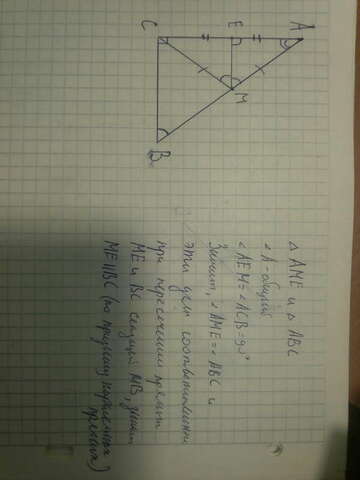 C
E
A
M
B
△ AME и △ ABC
∠A - общий
∠AEM = ∠ACB = 90°
Значит, ∠AME = ∠ABC и
эти углы соответственные
при пересечении прямых
ME и BC секущей MB, значит
ME || BC (по признаку параллельных
прямых)